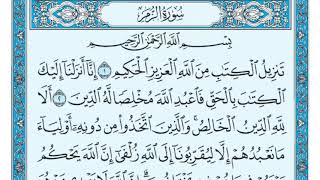 سُورَةُ الزُّمَرِ
بِسْمِ اللَّهِ الرَّحْمَٰنِ الرَّحِيمِ
تَنزِيلُ الْكِتَٰبِ مِنَ اللَّهِ الْعَزِيزِ الْحَكِيمِ ١ إِنَّآ أَنزَلْنَآ إِلَيْكَ
الْكِتَٰبَ بِالْحَقِّ فَاعْبُدِ اللَّهَ مُخْلِصًا لَّهُ الدِّينَ ٢ أَلَا
لِلَّهِ الدِّينُ الْخَالِصُ ۚ وَالَّذِينَ اتَّخَذُوا مِن دُونِهِۦٓ أَوْلِيَآءَ
مَا نَعْبُدُهُمْ إِلَّا لِيُقَرِّبُونَآ إِلَى اللَّهِ زُلْفَىٰٓ إِنَّ اللَّهَ يَحْكُمُ